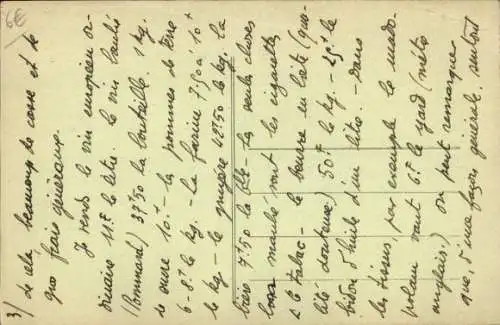 6€
3/ de cela, beaucoup de casse et de
gros frais généraux.
Je vends le vin européen or-
dinaire 11.f le litre. le vin bouché
(Pommard) 37f50 la bouteille. 1 kg.
de sucre 10.f - les pommes de terre
6-8.f le kg. - la farine 7.50 à 10.f
le kg - le gruyère 42f50 le kg. la
bière 7.f50 la - les seules choses
bon marché sont les cigarettes
et le tabac - le beurre en boîte (qua-
lité douteuse) 50.f le kg. - 25.f le
bidon d'huile d'un litre. - Dans
les tissus, par exemple le mado-
polam vaut 6.f le yard (mètre
anglais.) On peut remarquer
que, d'une façon générale, surtout